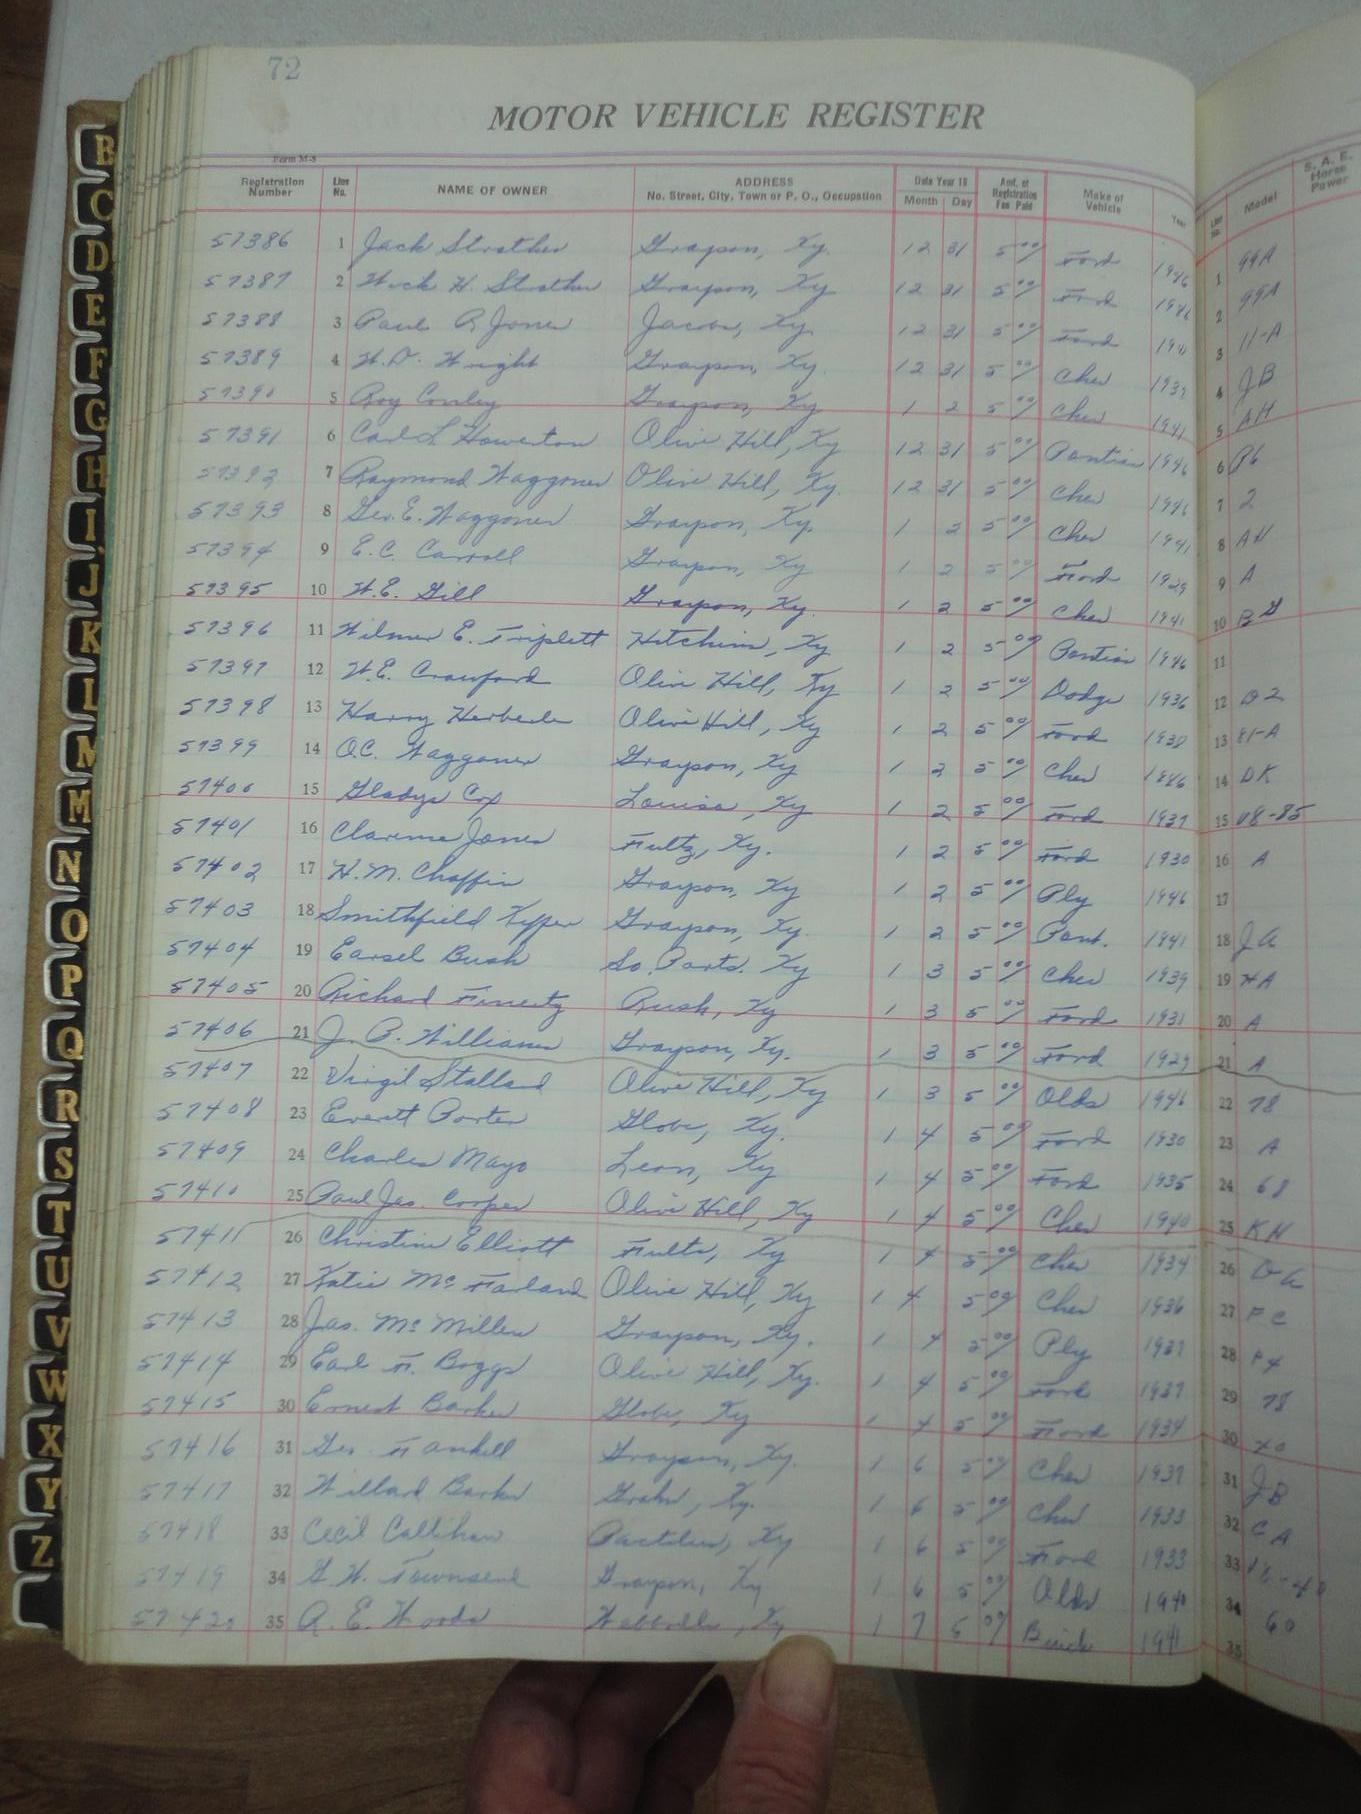 72
MOTOR VEHICLE REGISTER
Form M-8
Registration Number Line No. NAME OF OWNER ADDRESS No. Street, City, Town or P. O., Occupation Date Year 19 Month Day Amt. of Registration Fee Paid Make of Vehicle Year Line No. Model S. A. E. Horse Power
57386 1 Jack Strother Grayson, Ky. 12 31 5 00 Ford 1946 1 99A
57387 2 H. Strother Grayson, Ky 12 31 5 00 Ford 1946 2 99A
57388 3 Paul R. Jones Jacobs, Ky. 12 31 5 00 Ford 1941 3 11-A
57389 4 W.D. Wright Grayson, Ky. 12 31 5 00 Chev 1937 4 JB
57390 5 Roy Conley Grayson, Ky 1 2 5 00 Chev 1941 5 AH
57391 6 Carl L Howerton Olive Hill, Ky 12 31 5 00 Pontiac 1946 6 P6
57392 7 Raymond Waggoner Olive Hill, Ky. 12 31 5 00 Chev 1946 7 2
57393 8 Geo. E. Waggoner Grayson, Ky. 1 2 5 00 Chev 1941 8 AH
57394 9 E.C. Carroll Grayson, Ky 1 2 5 00 Ford 1929 9 A
57395 10 W.E. Gill Grayson, Ky. 1 2 5 00 Chev 1941 10
57396 11 Wilmer E. Triplett Hitchins, Ky 1 2 5 00 Pontiac 1946 11
57397 12 W.E. Crawford Olive Hill, Ky 1 2 5 00 Dodge 1936 12 D2
57398 13 Harry Olive Hill, Ky 1 2 5 00 Ford 1938 13 81-A
57399 14 O.C. Waggoner Grayson, Ky 1 2 5 00 Chev 1946 14 DK
57400 15 Gladys Cox Louisa, Ky 1 2 5 00 Ford 1937 15 V8-85
57401 16 Clarence Jones Fultz, Ky. 1 2 5 00 Ford 1930 16 A
57402 17 H.M. Chaffin Grayson, Ky 1 2 5 00 Ply 1946 17
57403 18 Smithfield Grayson, Ky. 1 2 5 00 Pont. 1941 18 JA
57404 19 Earsel Bush So. Ports. Ky 1 3 5 00 Chev 1939 19
57405 20 Richard Rush, Ky 1 3 5 00 Ford 1931 20 A
57406 21 J. B. Williams Grayson, Ky. 1 3 5 00 Ford 1929 21 A
57407 22 Virgil Stallard Olive Hill, Ky 1 3 5 00 Olds 1946 22 78
57408 23 Everett Porter Globe, Ky. 1 4 5 00 Ford 1930 23 A
57409 24 Charles Mayo Leon, Ky 1 4 5 00 Ford 1935 24 68
57410 25 Paul Jas. Cooper Olive Hill, Ky 1 4 5 00 Chev 1940 25 KH
57411 26 Christine Elliott Fultz, Ky 1 4 5 00 Chev 1934 26 DA
57412 27 Katie McFarland Olive Hill, Ky 1 4 5 00 Chev 1936 27 FC
57413 28 Jas. McMillen Grayson, Ky. 1 4 5 00 Ply 1937 28 P4
57414 29 Earl F. Boggs Olive Hill, Ky. 1 4 5 00 Ford 1937 29 78
57415 30 Ernest Barker Globe, Ky 1 4 5 00 Ford 1934 30 40
57416 31 Geo. Grayson, Ky. 1 6 5 00 Chev 1937 31 JB
57417 32 Willard Barker Grahn, Ky. 1 6 5 00 Chev 1933 32 CA
57418 33 Cecil Callihan Pactolus, Ky 1 6 5 00 Ford 1933 33
57419 34 G.W. Townsend Grayson, Ky 1 6 5 00 Olds 1940 34 60
57420 35 R. E. Woods Webbville, Ky 1 7 5 00 Buick 1941 35
B
C
D
E
F
G
H
I
J
K
L
M
M
N
O
P
Q
R
S
T
U
V
W
X
Y
Z